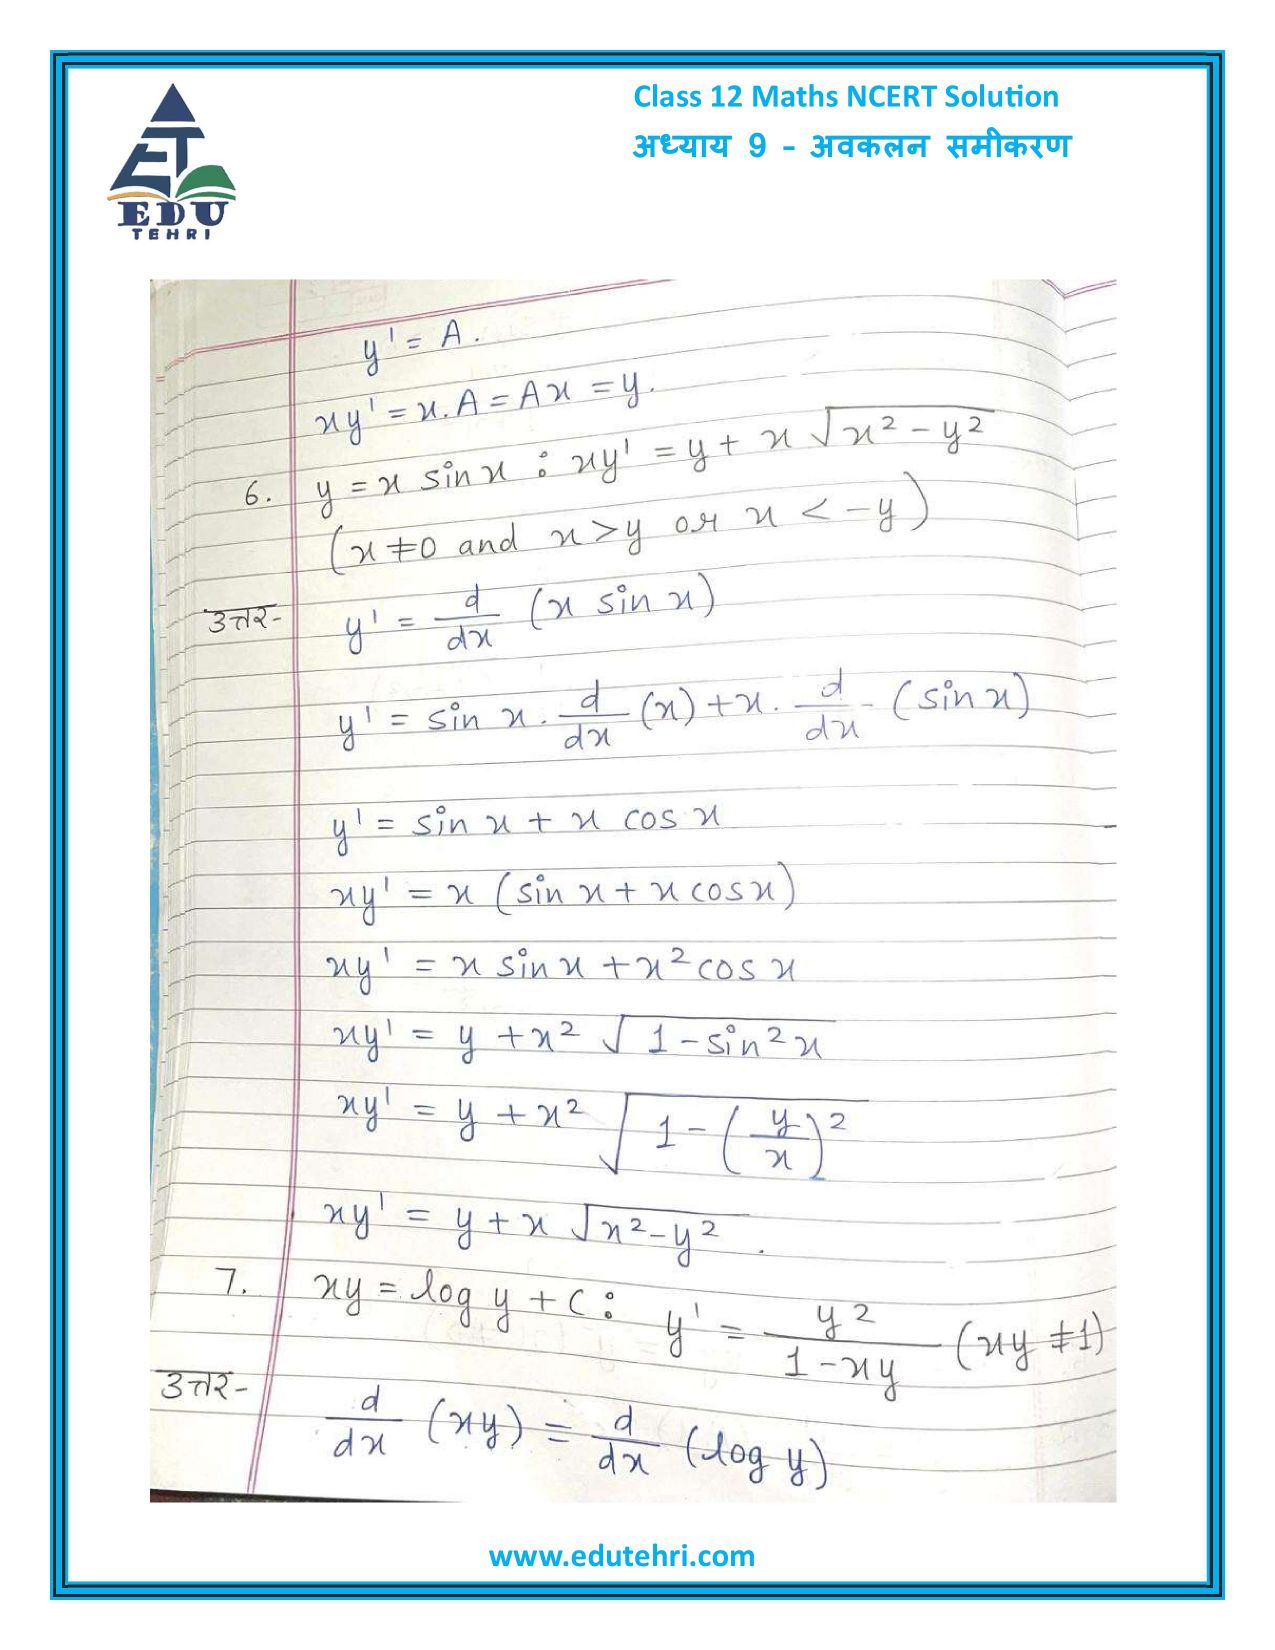 Class 12 Maths NCERT Solution
अध्याय 9 - अवकलन समीकरण
EDU
TEHRI
y' = A.
xy' = x.A = Ax = y.
6. y = x sin x : xy' = y + x √(x² - y²)
(x ≠ 0 and x > y or x < -y)
उत्तर- y' = d/dx (x sin x)
y' = sin x . d/dx (x) + x . d/dx (sin x)
y' = sin x + x cos x
xy' = x (sin x + x cos x)
xy' = x sin x + x² cos x
xy' = y + x² √(1 - sin² x)
xy' = y + x² √(1 - (y/x)²)
xy' = y + x √(x² - y²) .
7. xy = log y + C : y' = y²/(1 - xy) (xy ≠ 1)
उत्तर- d/dx (xy) = d/dx (log y)
www.edutehri.com